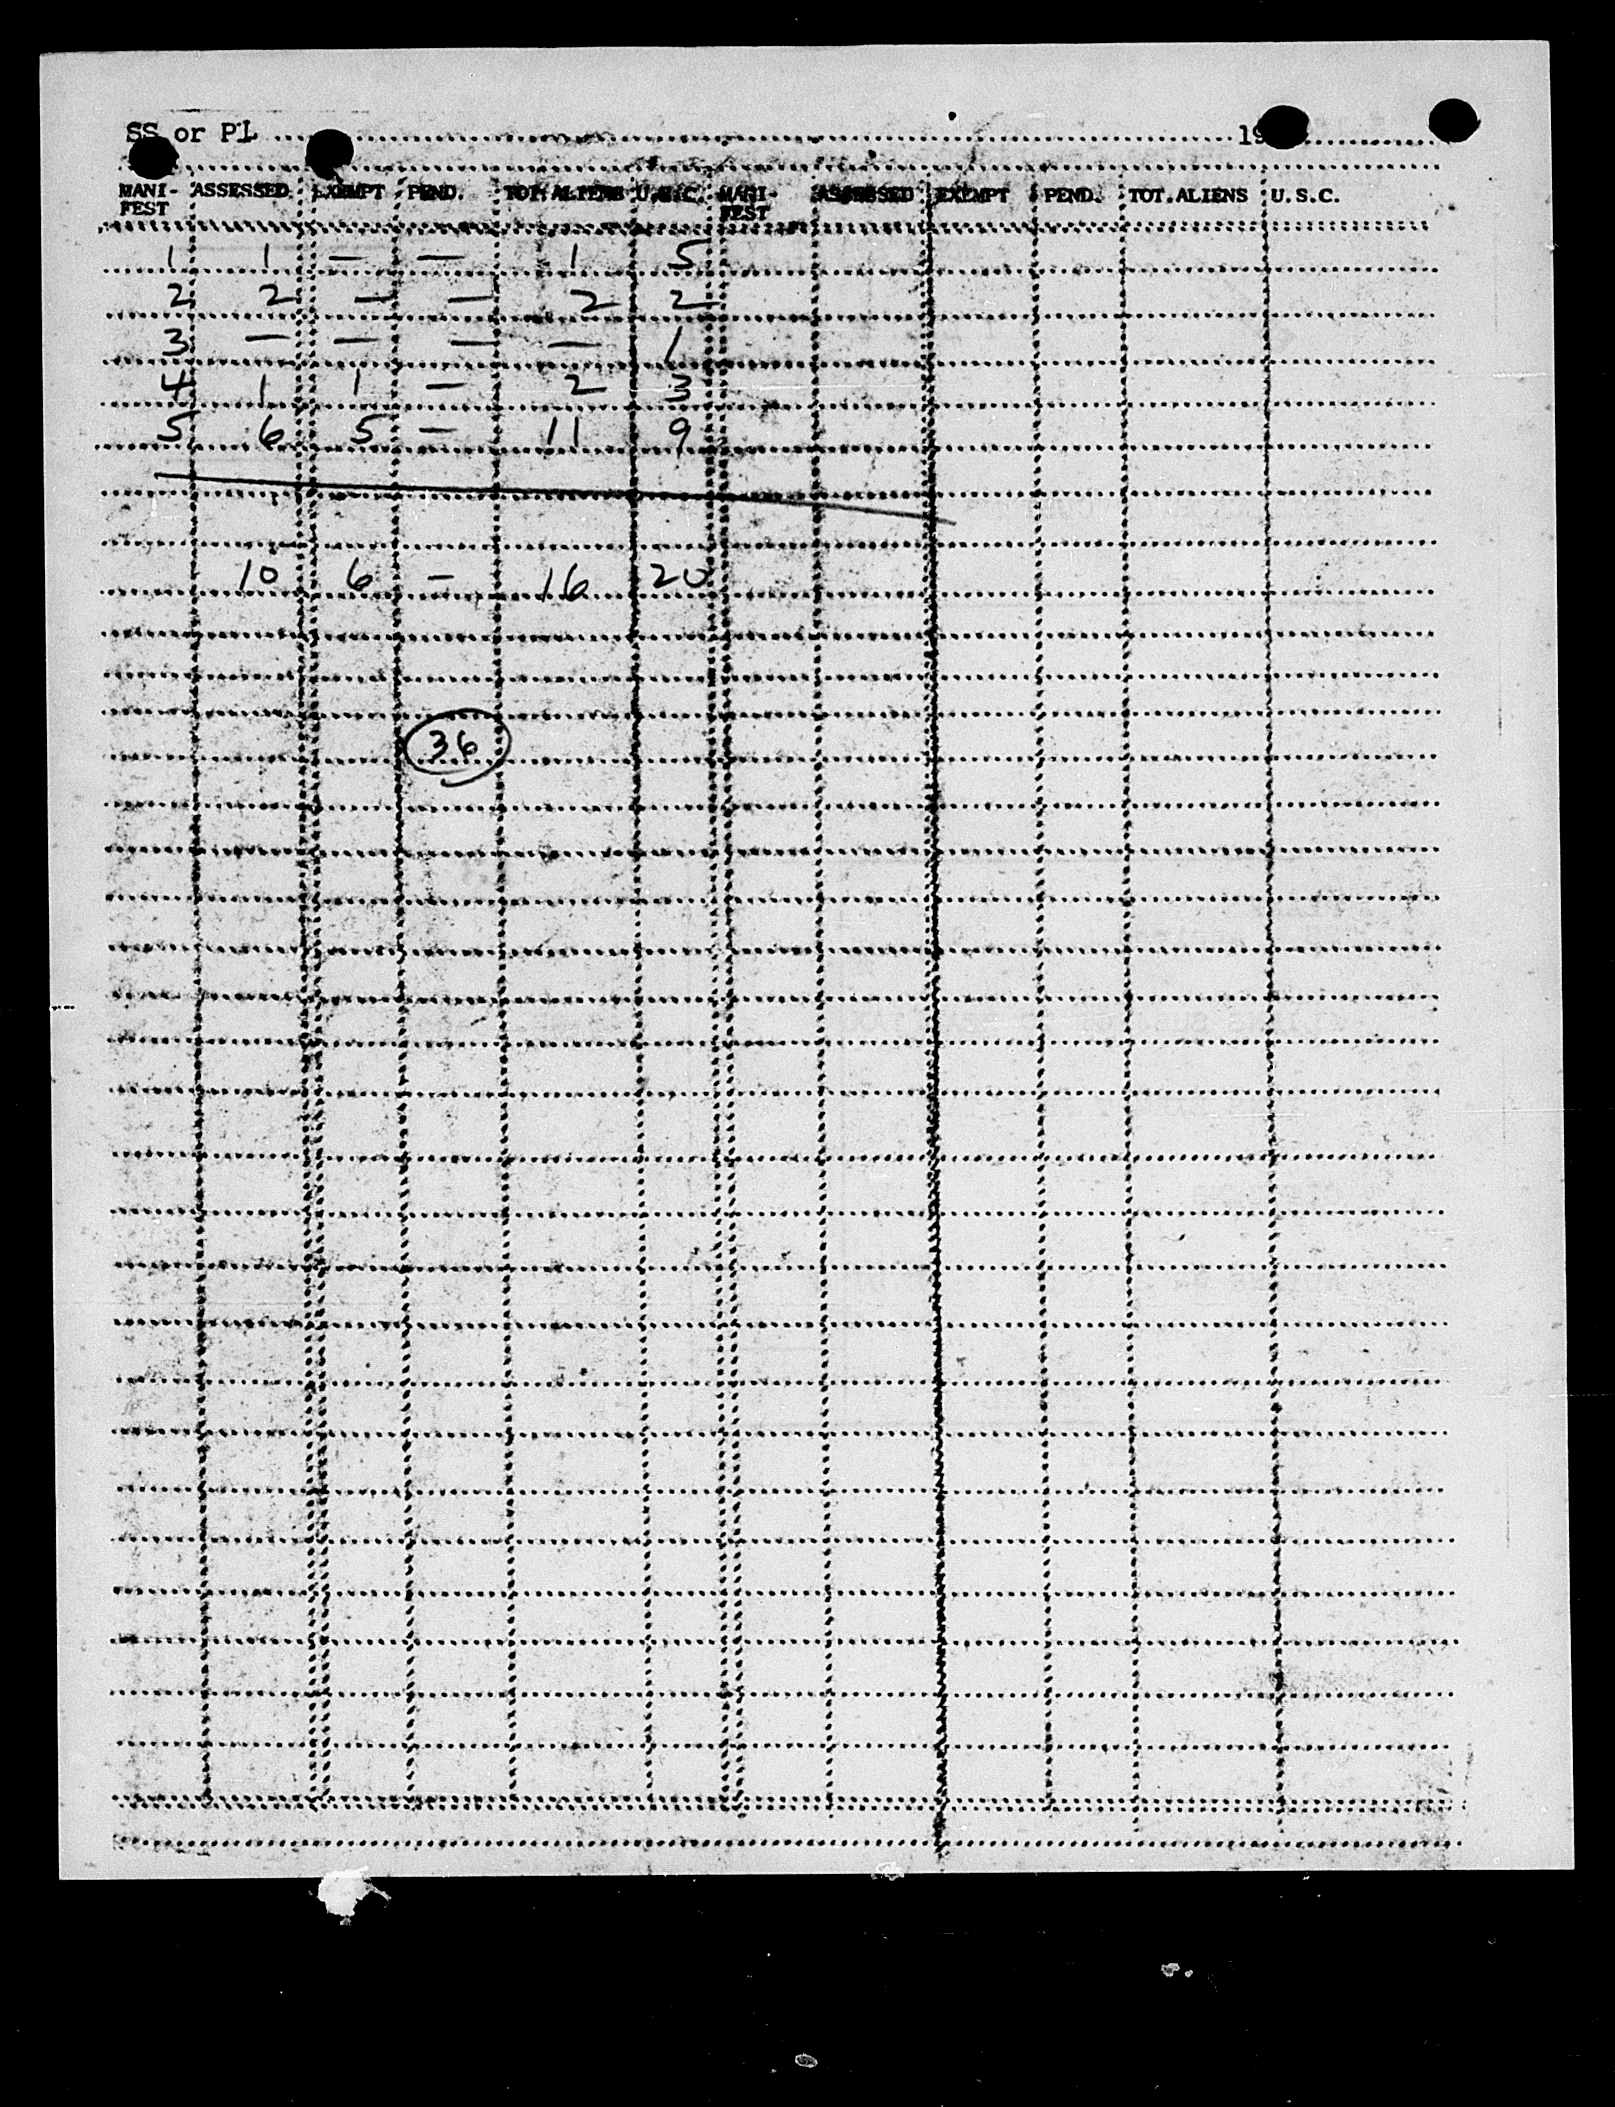 SS or Pl 19
MANI- ASSESSED EXEMPT PEND. TOT. ALIENS U.S.C. MANI- ASSESSED EXEMPT PEND. TOT. ALIENS U.S.C.
FEST FEST
1 1 — — 1 5
2 2 — — 2 2
3 — — — — 1
4 1 1 — 2 3
5 6 5 — 11 9
10 6 — 16 20
36